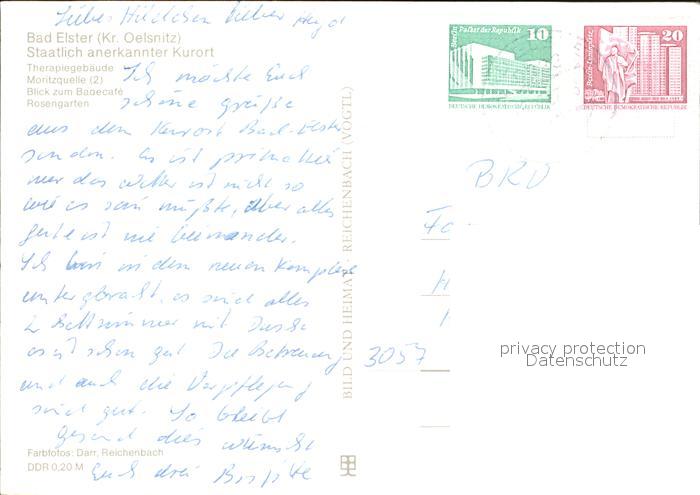 Liebes Hildchen Lieber
Bad Elster (Kr. Oelsnitz)
Staatlich anerkannter Kurort
Therapiegebäude
Moritzquelle (2)
Blick zum Badecafé
Rosengarten
Ich möchte Euch
schöne Grüße
aus dem Kurort Bad-Elster
senden. Es ist prima hier
nur das Wetter ist nicht so
wie es sein müßte, aber alles
gute ist nie beieinander.
Ich bin in dem neuen Komplex
untergebracht, es sind alles
2 Bettzimmer mit Dusche
es ist schon gut. Die Betreuung
und auch die Verpflegung
sind gut. So bleibt
gesund dies wünscht
Euch
Farbfotos: Darr, Reichenbach
DDR 0,20 M
BILD UND HEIMAT REICHENBACH (VOGTL)
Berlin Palast der Republik 10
DEUTSCHE DEMOKRATISCHE REPUBLIK
Berlin-Leninplatz 20
DEUTSCHE DEMOKRATISCHE REPUBLIK
BRD
3057
privacy protection
Datenschutz